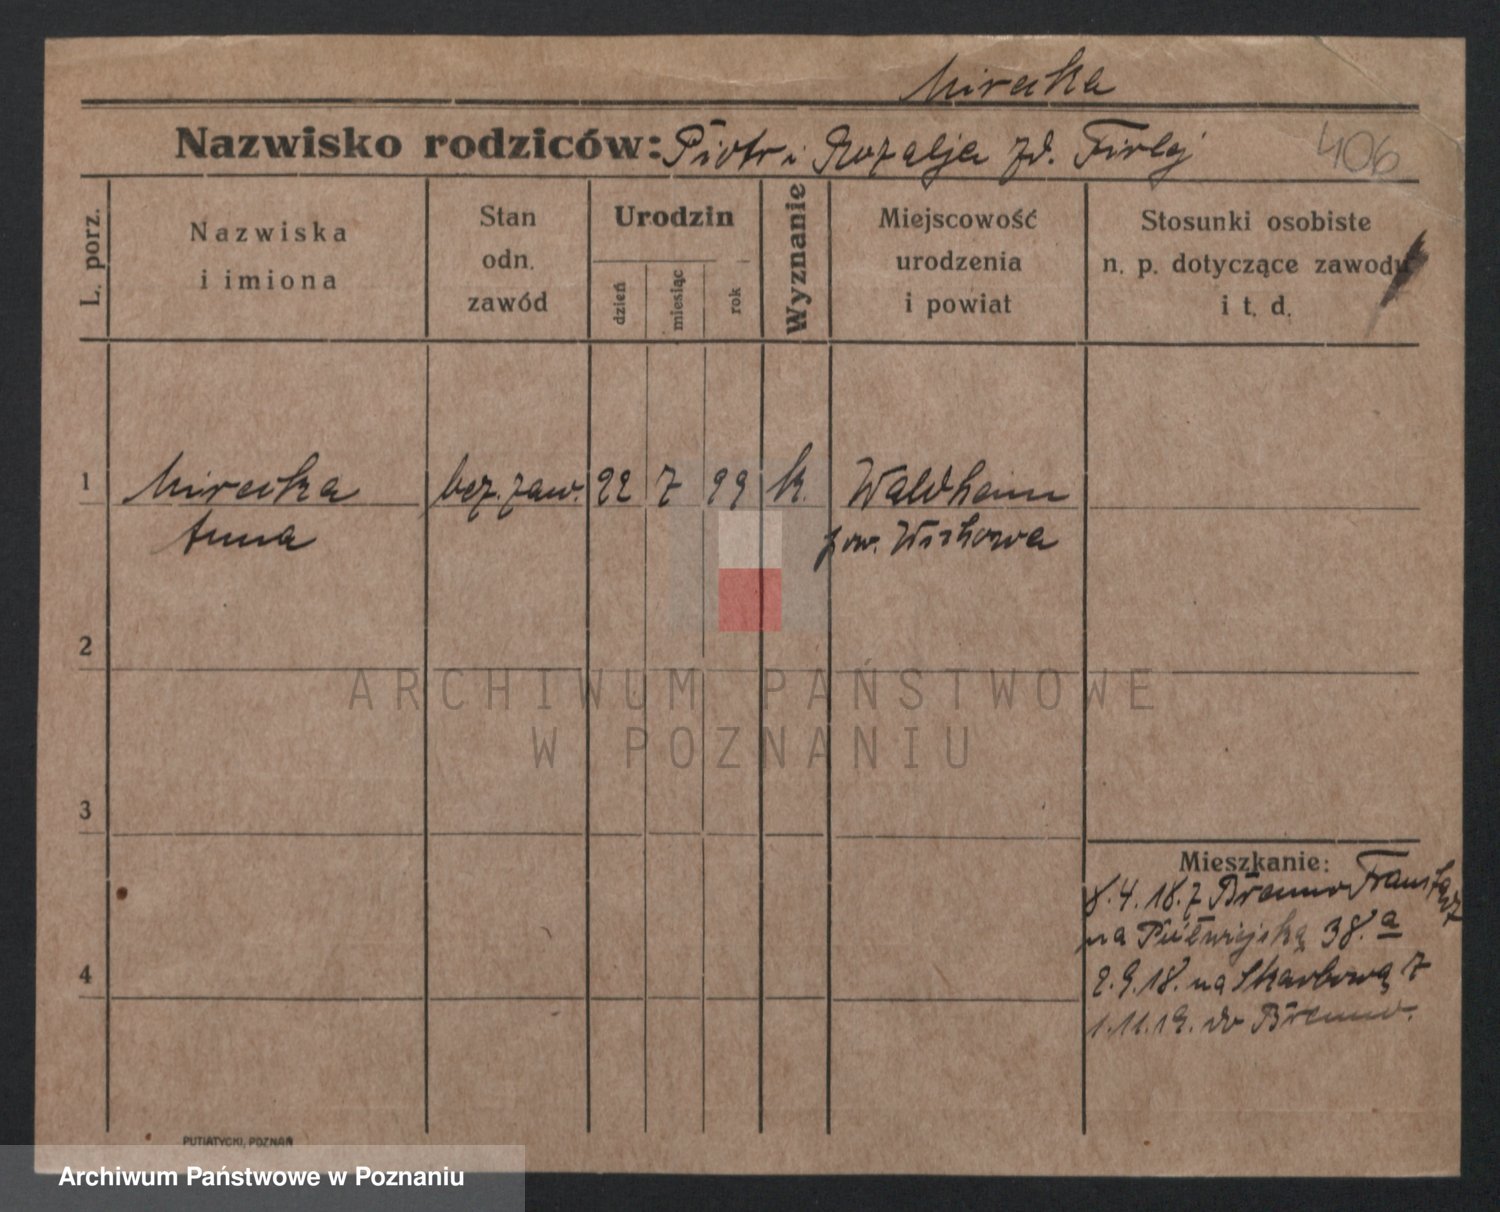 Mirecka
Nazwisko rodziców: Piotr i Rozalja zd. Firlej
406
L. porz.
Nazwiska
i imiona
Stan
odn.
zawód
Urodzin
dzień
miesiąc
rok
Wyznanie
Miejscowość
urodzenia
i powiat
Stosunki osobiste
n. p. dotyczące zawodu
i t. d.
1 Mirecka bez. zaw. 22 7 99 k. Waldheim
Anna pow. Wschowa
2
ARCHIWUM PAŃSTWOWE
W POZNANIU
3
Mieszkanie:
8.4.18. z Brenno
na Półwiejską 38.a
4
2.9.18. na Skarbową 7
1.11.19. do Brenno.
PUTIATYCKI, POZNAŃ
Archiwum Państwowe w Poznaniu